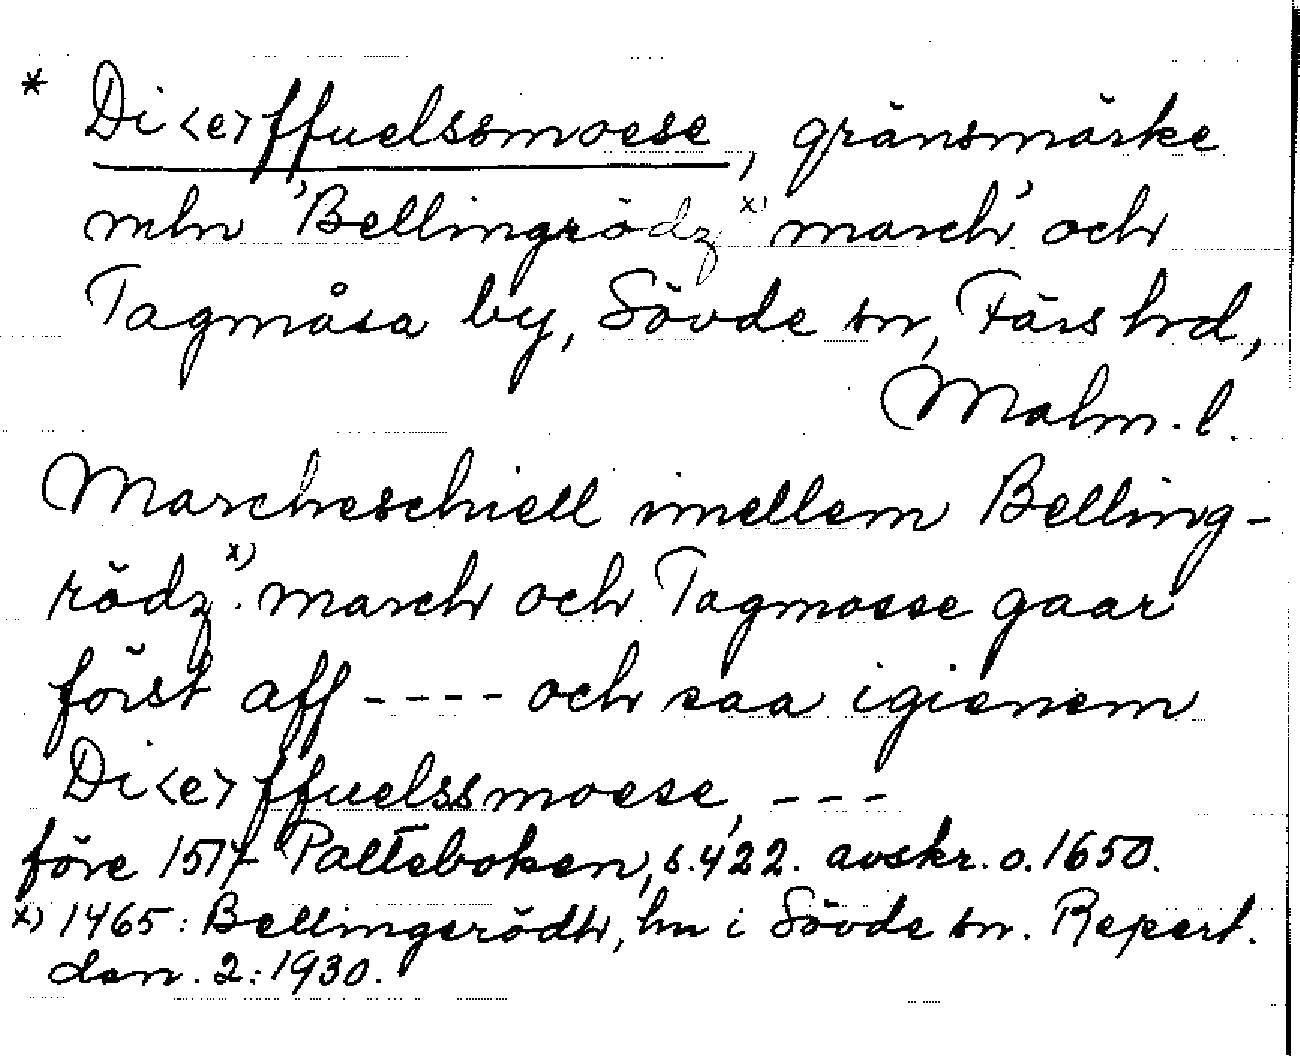 * Di<e>ffuelssmoese, gränsmärke
mln 'Bellingrödz x) march' och
Tagmåsa by, Sövde sn, Färs hrd,
Malm. l.
Marcheschiell imellem Belling-
rödz x). march och Tagmosse gaar
först aff ---- och saa igienem
Di<e>ffuelssmoese, ---
före 1514 Palteboken, s. 422. avskr. o. 1650.
x) 1465: Bellingerödh, hn i Sövde sn. Repert.
dan. 2: 1930.